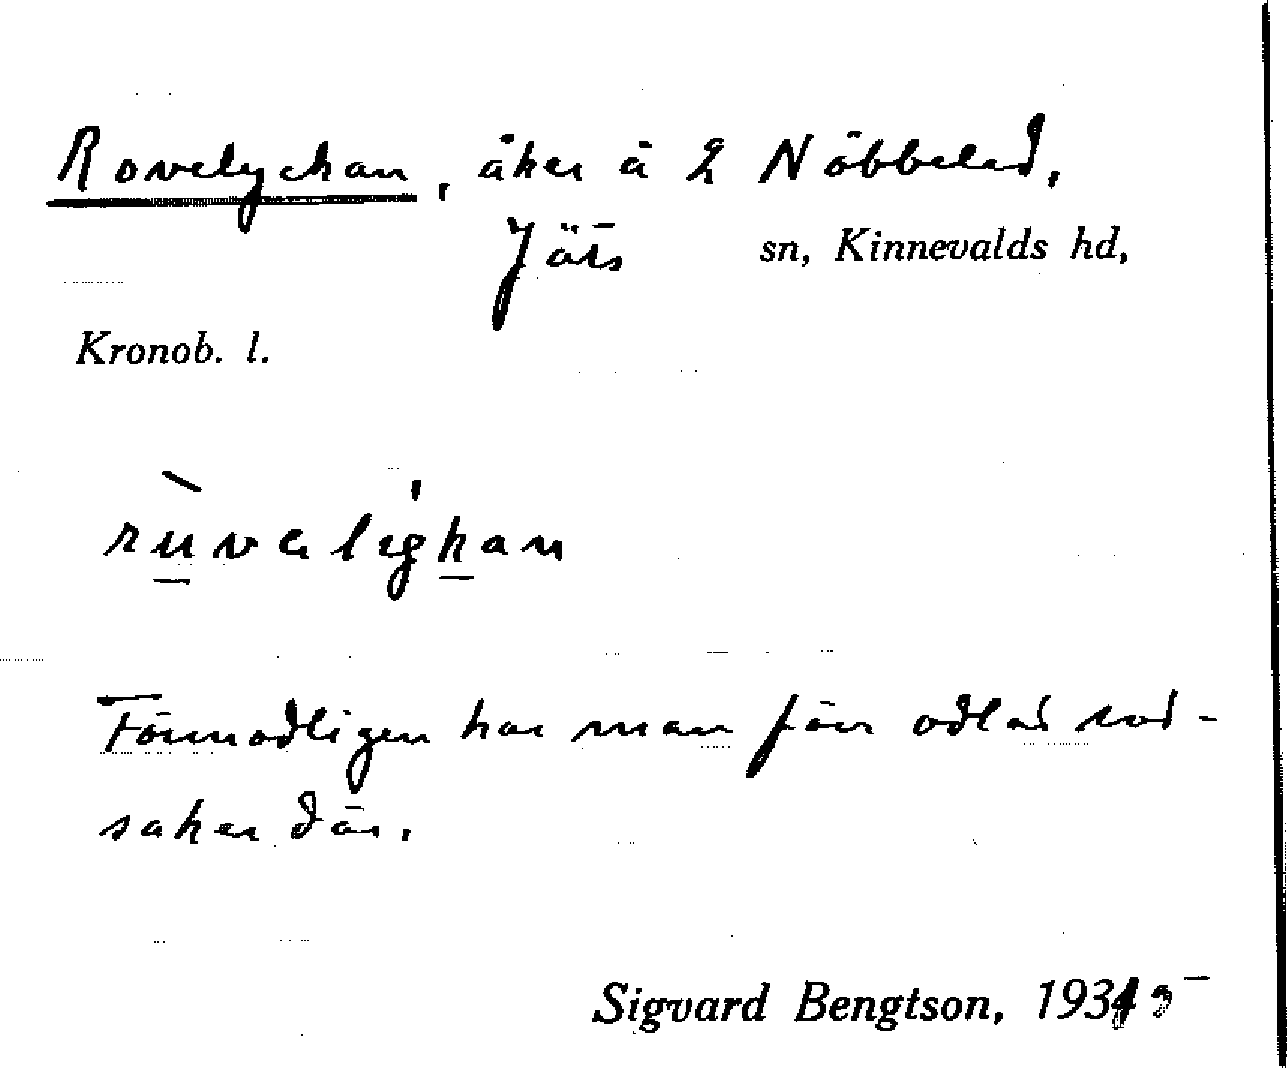 Rovelyckan, åker å 2 Nöbbeled,
Jäts sn, Kinnevalds hd,
Kronob. l.
ruvaligkan
Förmodligen har man förr odlat rot-
saker där.
Sigvard Bengtson, 1935